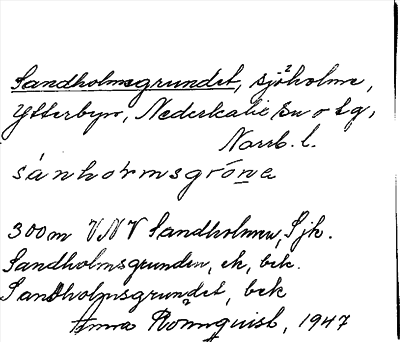 Sandholmsgrundet, sjöholme,
Ytterbyn, Nederkalix sn o tg,
Norrb. l.
sánhoɫmsgróna
300m VNV Sandholmen, Sjk.
Sandholmsgrunden, ek, bek.
Sandholmsgrundet, bek
Anna Rönnquist, 1947